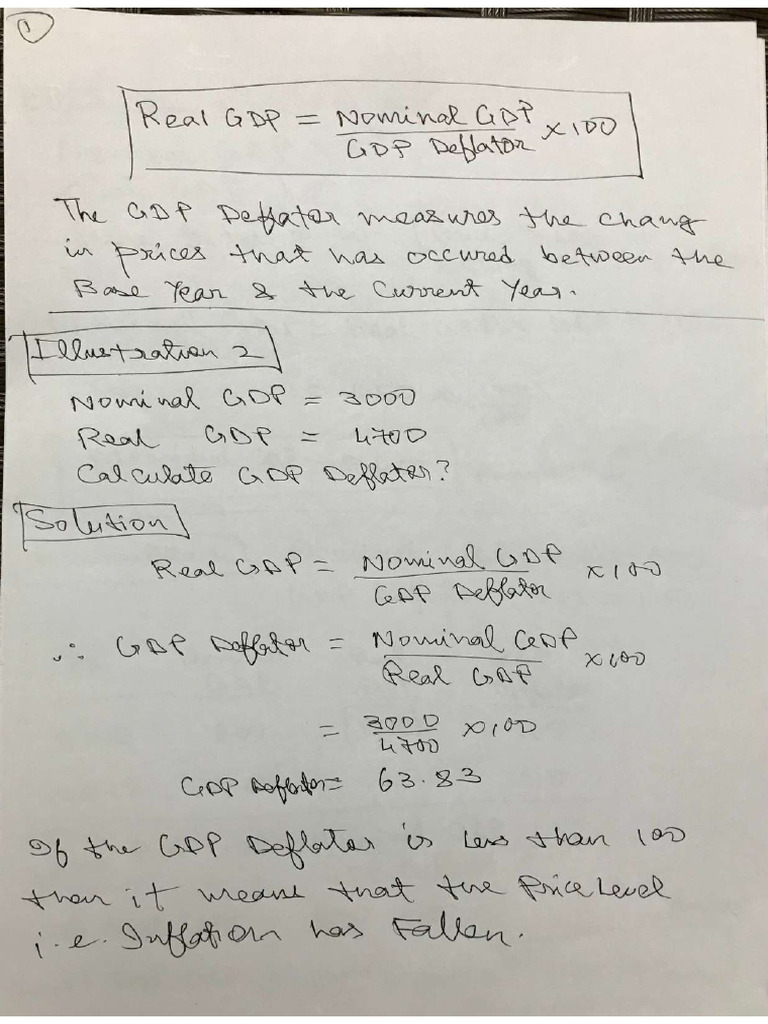 1
Real GDP = Nominal GDP / GDP Deflator × 100
The GDP Deflator measures the chang
in prices that has occured between the
Base Year & the Current Year.
Illustration 2
Nominal GDP = 3000
Real GDP = 4700
Calculate GDP Deflator?
Solution
Real GDP = Nominal GDP / GDP Deflator × 100
∴ GDP Deflator = Nominal GDP / Real GDP × 100
= 3000 / 4700 × 100
GDP Deflator = 63.83
If the GDP Deflator is Less than 100
then it means that the Price Level
i.e. Inflation has Fallen.